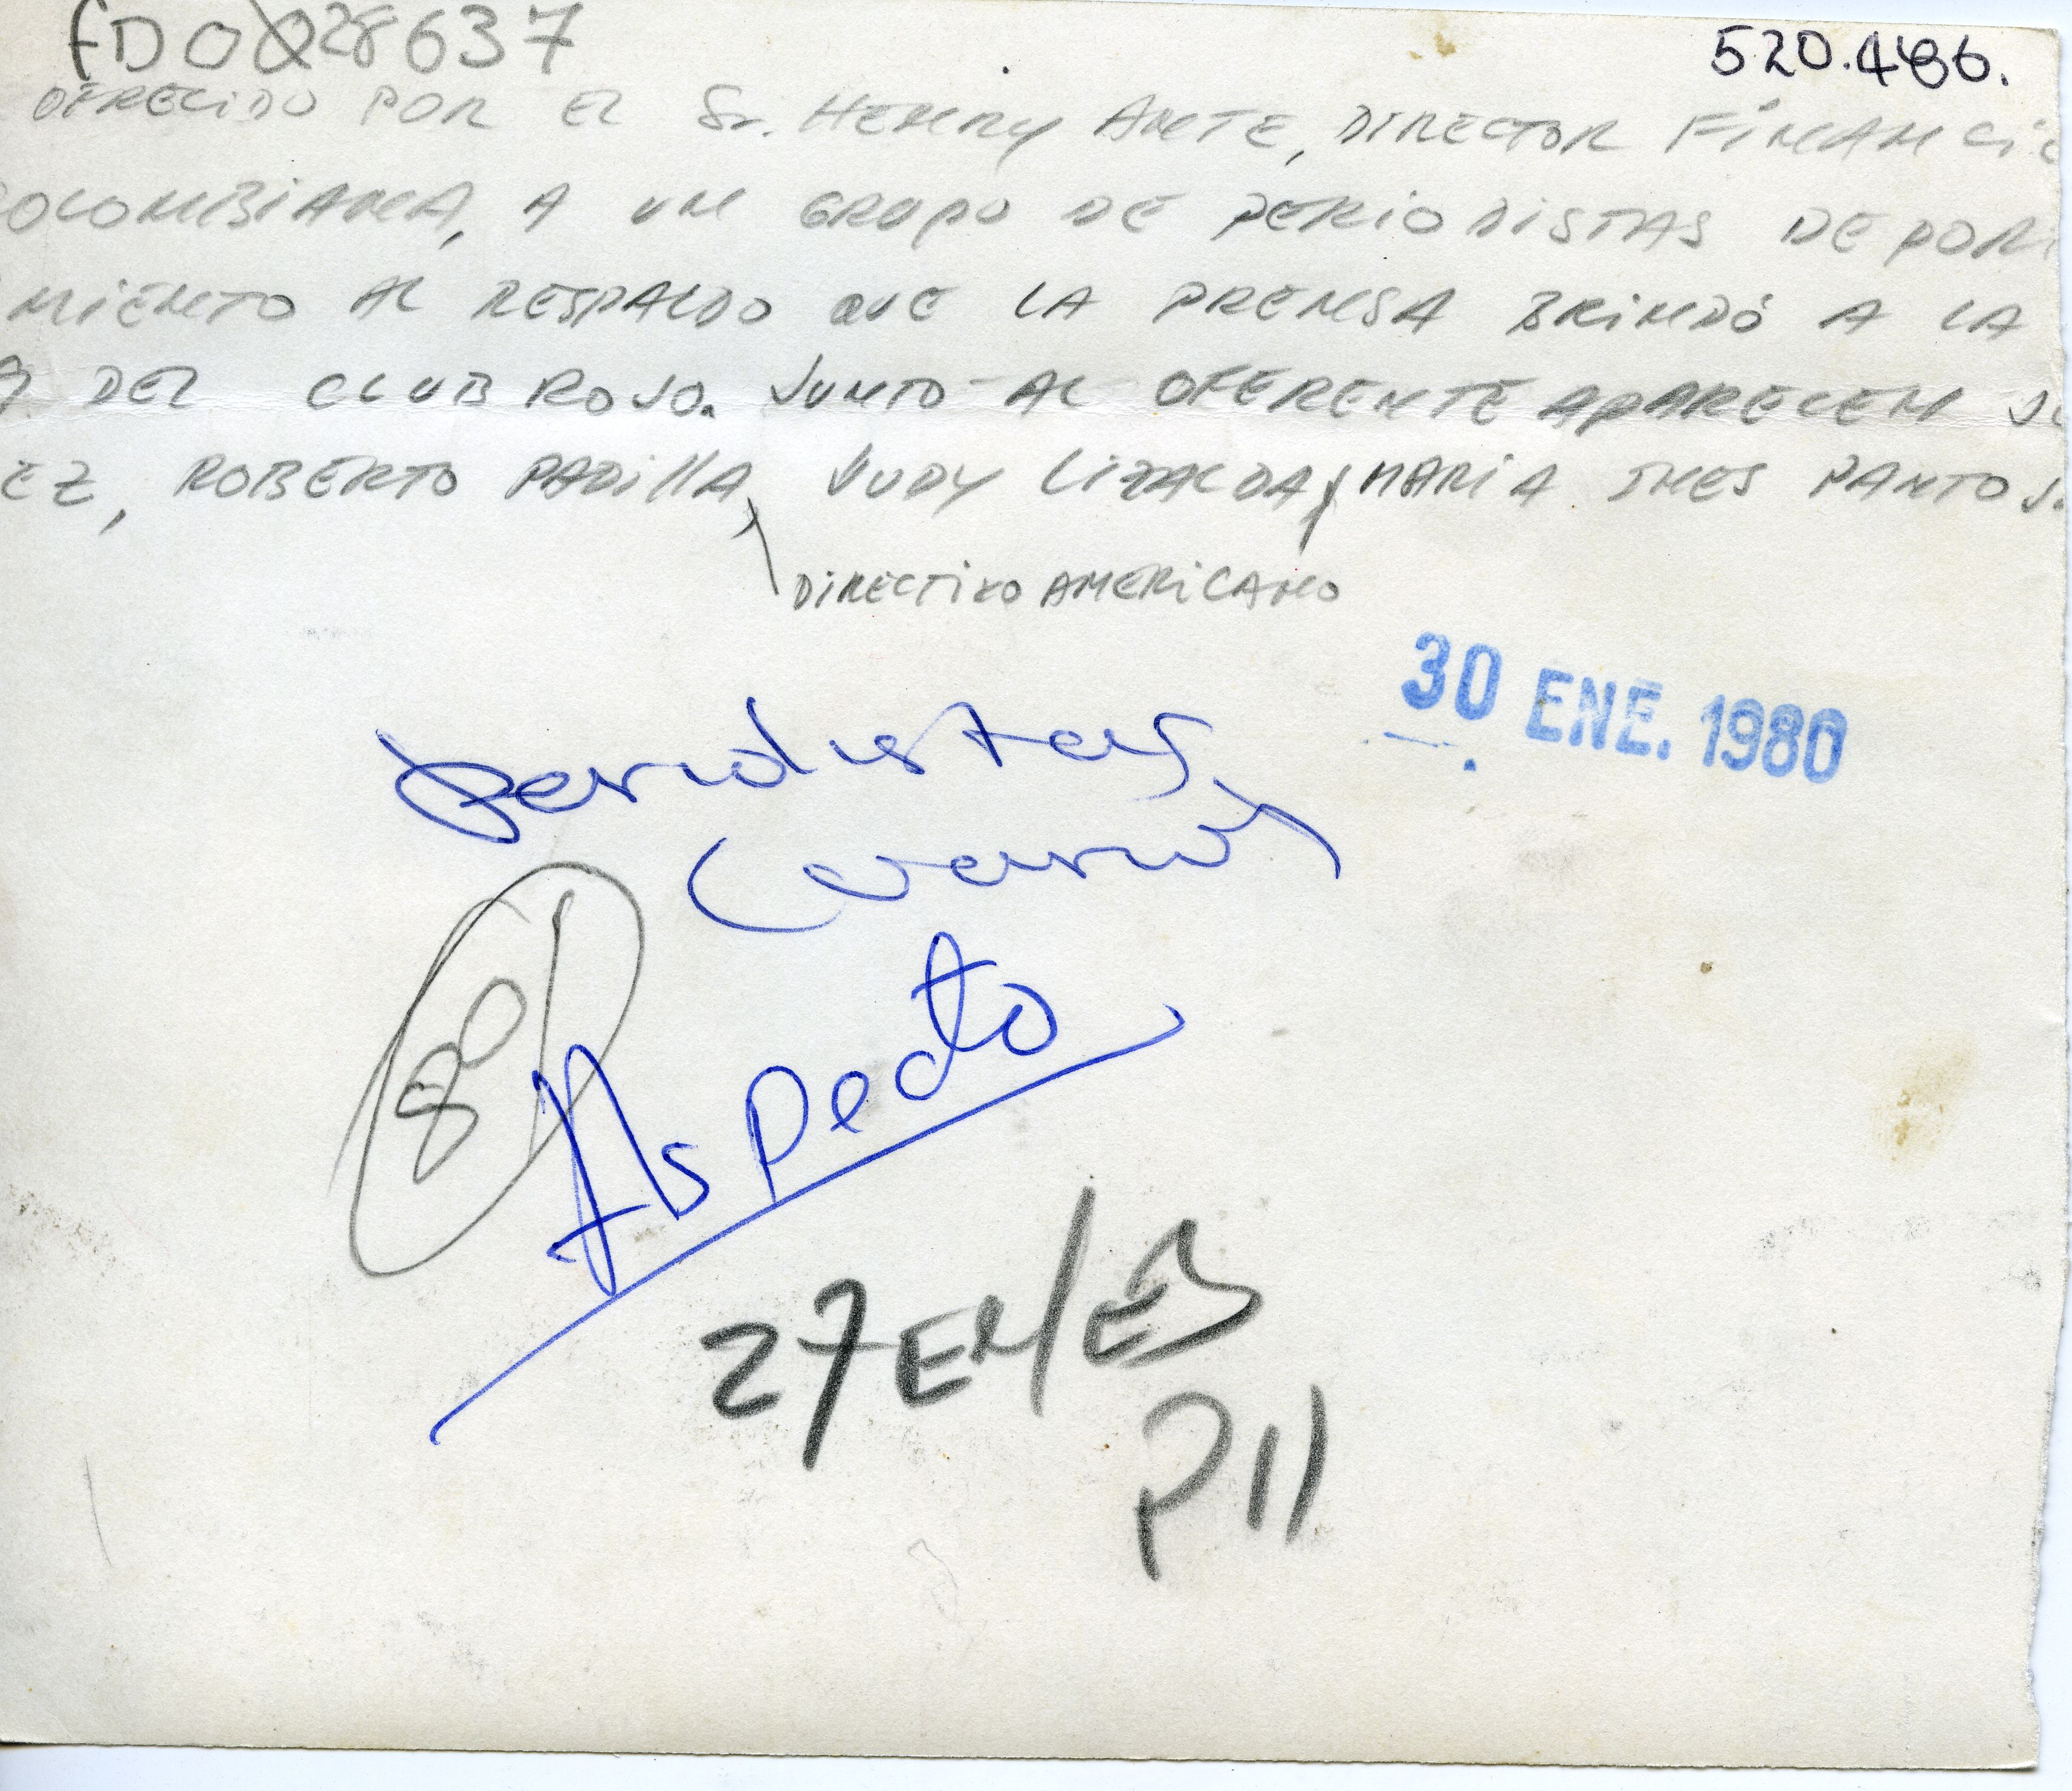 FD0028637
520.486.
OFRECIDO POR EL Sr. HENRY ANTE, DIRECTOR FINANCIE
COLOMBIANA, A UN GRUPO DE PERIODISTAS DEPOR
MIENTO AL RESPALDO QUE LA PRENSA BRINDÓ A LA
DEL CLUB ROJO. JUNTO AL OFERENTE APARECEN
EZ, ROBERTO PADILLA, JUDY LIZALDA y MARIA INES PANTOJ
DIRECTIVO AMERICANO
30 ENE. 1980
Periodistas
(varios)
80
Aspecto
27 EN/
P11